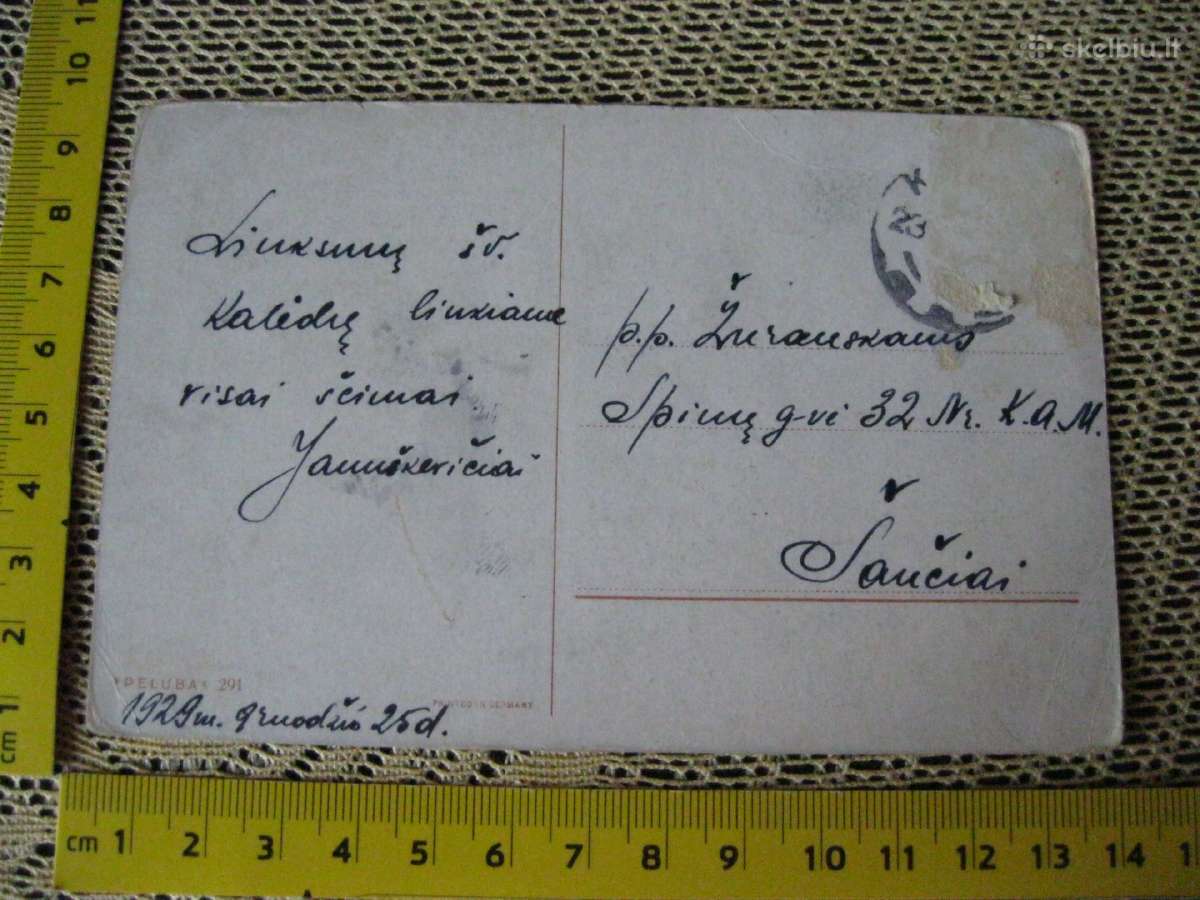 skelbiu.lt
Linksmų šv.
Kalėdų linkiame
visai šeimai
Januškevičiai
p.p. Žuranskams
Spimų g-vė 32 Nr. K.A.M.
Šančiai
"PELUBA" 291
PRINTED IN GERMANY
1929 m. gruodžio 25 d.
11
10
9
8
7
6
5
4
3
2
1
cm
cm 1 2 3 4 5 6 7 8 9 10 11 12 13 14 1